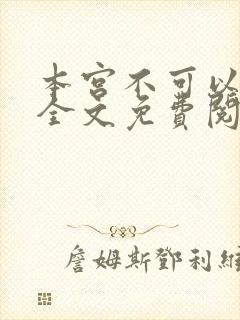 本宮不可以
全文免費閱
詹姆斯鄧利維